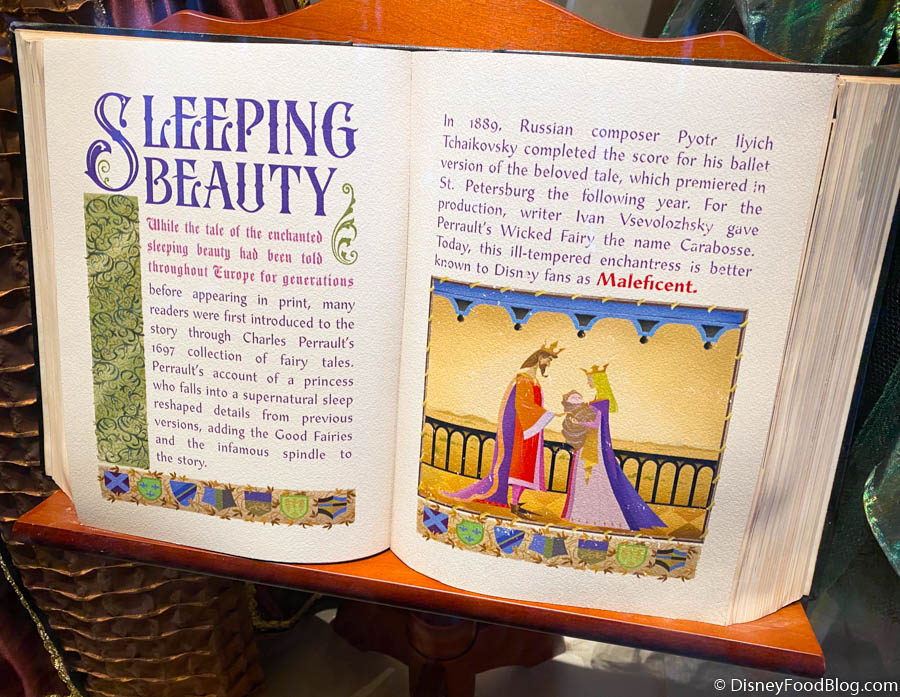 SLEEPING
BEAUTY
While the tale of the enchanted
sleeping beauty had been told
throughout Europe for generations
before appearing in print, many
readers were first introduced to the
story through Charles Perrault's
1697 collection of fairy tales.
Perrault's account of a princess
who falls into a supernatural sleep
reshaped details from previous
versions, adding the Good Fairies
and the infamous spindle to
the story.
In 1889, Russian composer Pyotr Ilyich
Tchaikovsky completed the score for his ballet
version of the beloved tale, which premiered in
St. Petersburg the following year. For the
production, writer Ivan Vsevolozhsky gave
Perrault's Wicked Fairy the name Carabosse.
Today, this ill-tempered enchantress is better
known to Disney fans as Maleficent.
© DisneyFoodBlog.com